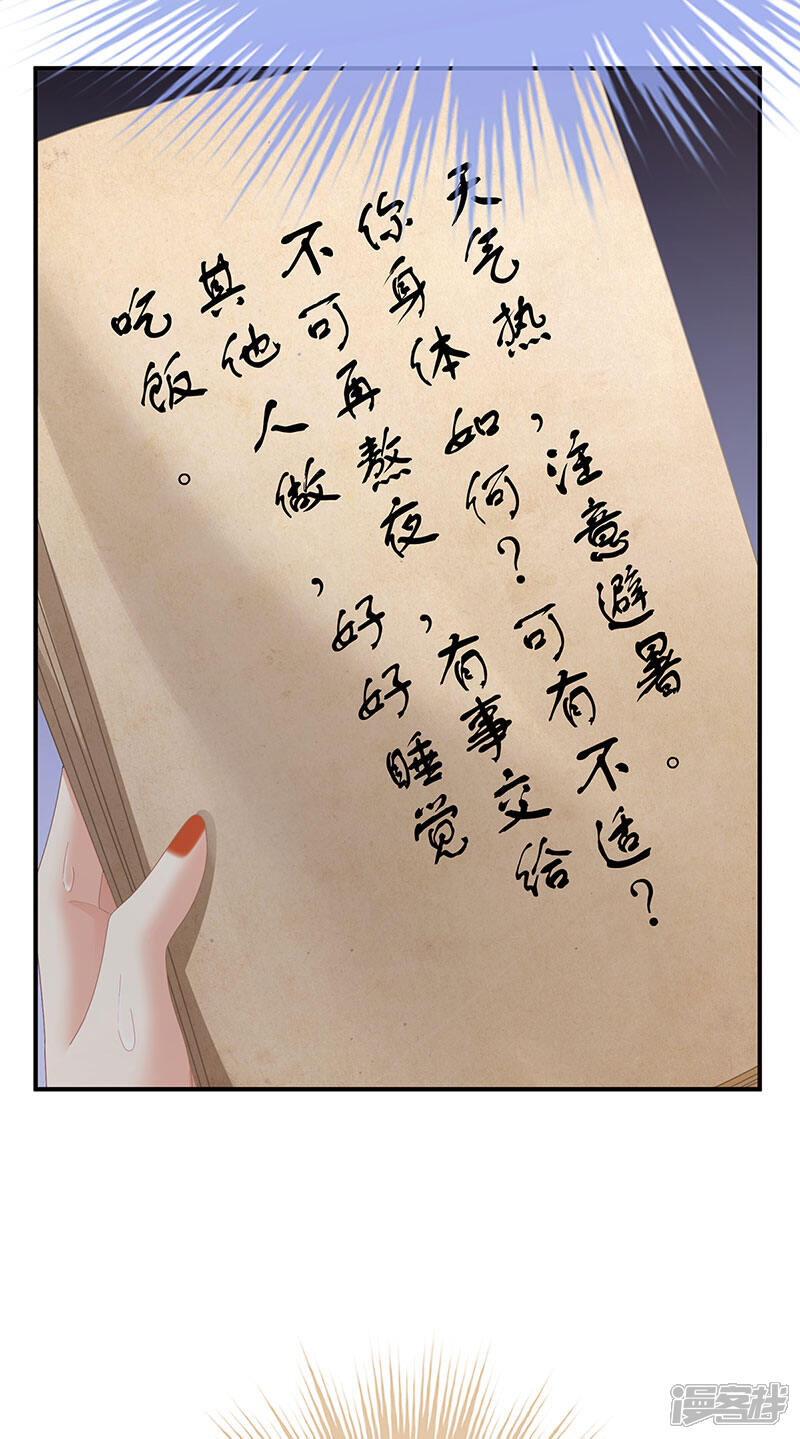 天气热，注意避暑。
你身体如何？可有不适？
不可再熬夜，有事交给
其他人做，好好睡觉
吃饭。
漫客栈